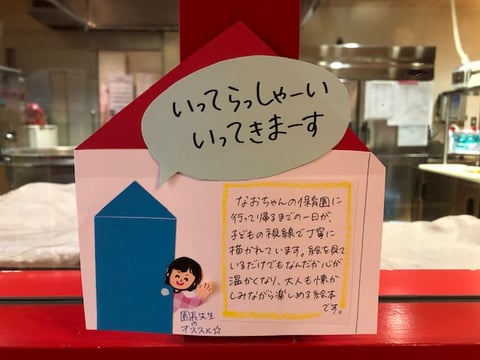 いってらっしゃーい
いってきまーす
なおちゃんの保育園に
行って帰るまでの一日が、
子どもの視線で丁寧に
描かれています。絵を見て
いるだけでもなんだか心が
温かくなり、大人も懐か
しみながら楽しめる絵本
です。
園長先生
の
オススメ☆